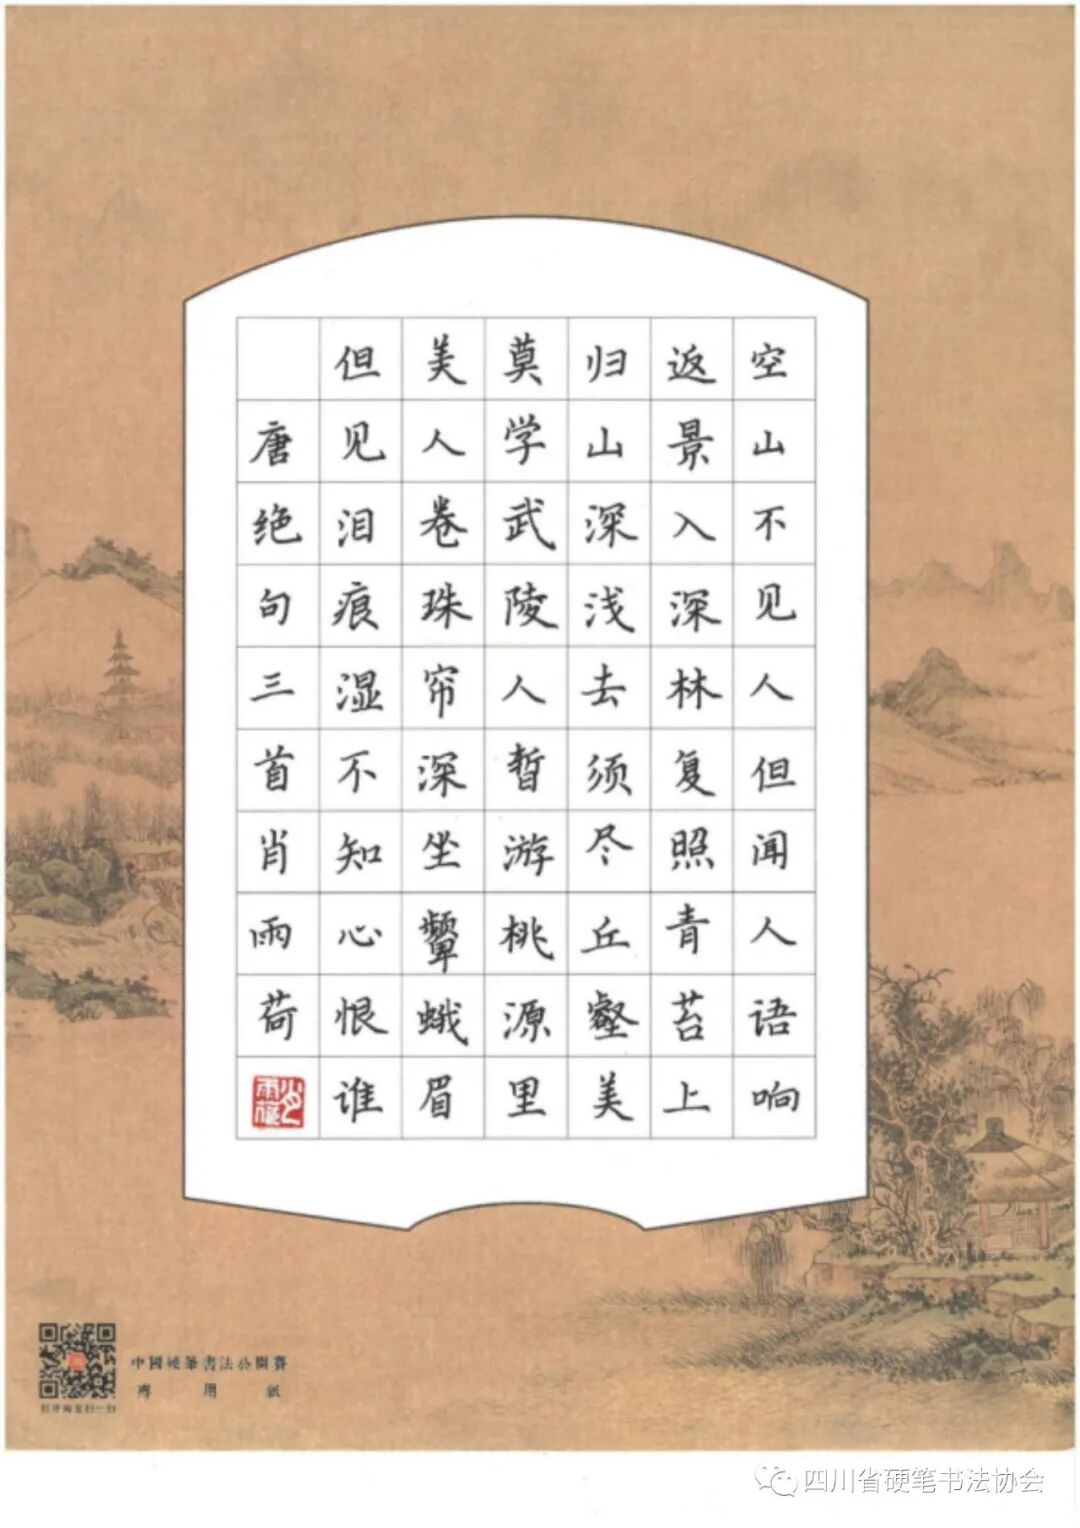 空山不见人但闻人语响
返景入深林复照青苔上
归山深浅去须尽丘壑美
莫学武陵人暂游桃源里
美人卷珠帘深坐颦蛾眉
但见泪痕湿不知心恨谁
唐绝句三首肖雨荷
中國硬筆書法公開賽
專用紙
打开淘宝扫一扫
四川省硬笔书法协会